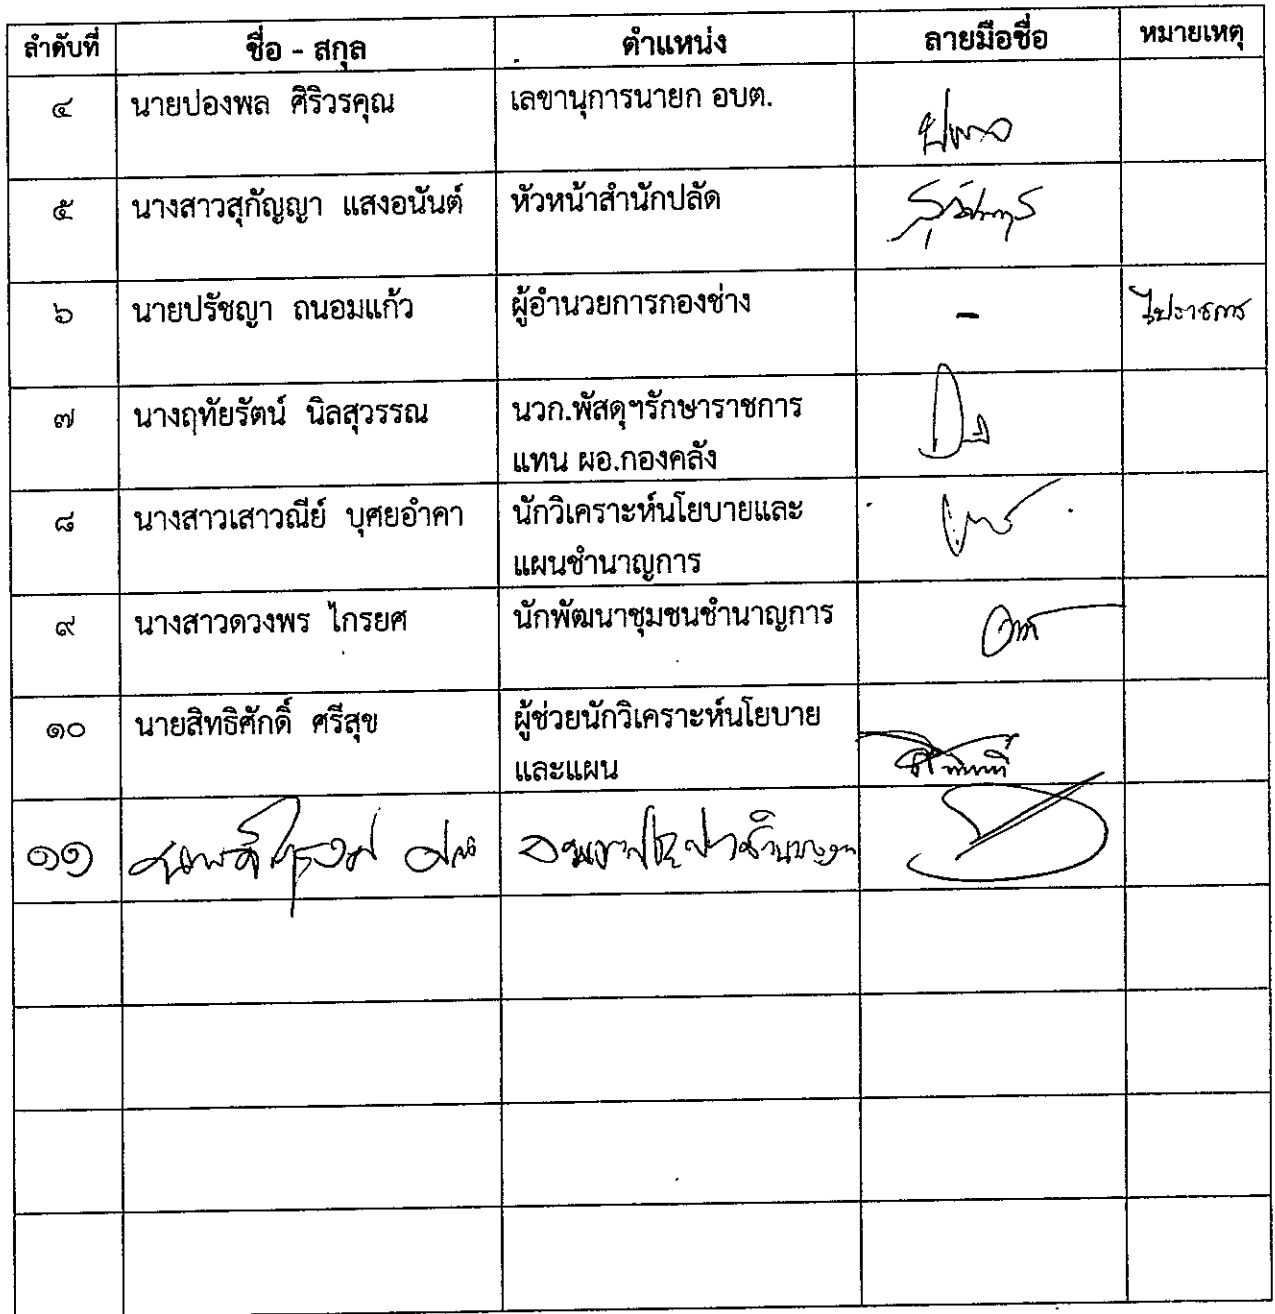 ลำดับที่ ชื่อ - สกุล ตำแหน่ง ลายมือชื่อ หมายเหตุ
๔ นายปองพล ศิริวรคุณ เลขานุการนายก อบต.
๕ นางสาวสุกัญญา แสงอนันต์ หัวหน้าสำนักปลัด
๖ นายปรัชญา ถนอมแก้ว ผู้อำนวยการกองช่าง - ไปราชการ
๗ นางฤทัยรัตน์ นิลสุวรรณ นวก.พัสดุฯรักษาราชการ
แทน ผอ.กองคลัง
๘ นางสาวเสาวณีย์ บุศยอำคา นักวิเคราะห์นโยบายและ
แผนชำนาญการ
๙ นางสาวดวงพร ไกรยศ นักพัฒนาชุมชนชำนาญการ
๑๐ นายสิทธิศักดิ์ ศรีสุข ผู้ช่วยนักวิเคราะห์นโยบาย
และแผน
๑๑